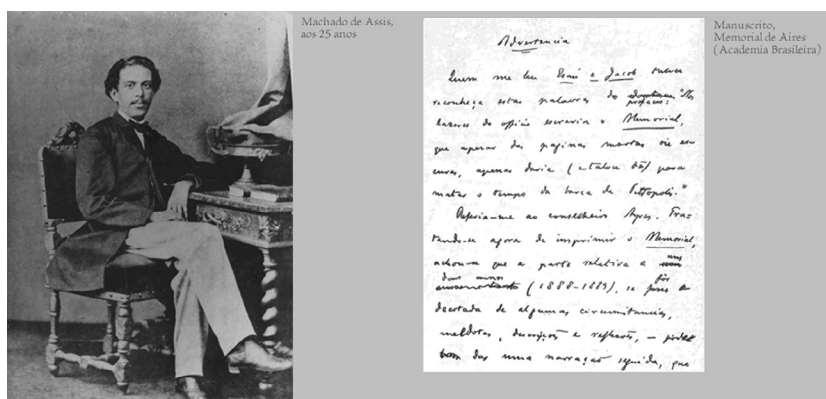 Machado de Assis,
aos 25 anos
Manuscrito,
Memorial de Aires
(Academia Brasileira)
Advertencia
Quem me leu Esaú e Jacob talvez
reconheça estas palavras do prefacio: "Nos
lazeres do officio escrevia o Memorial,
que apesar das paginas mortas ou es-
curas, apenas daria (e talvez dê) para
matar o tempo da barca de Petropolis."
Referia-me ao conselheiro Ayres. Tra-
tando-se agora de imprimir o Memorial,
achou-se que a parte relativa a uns
dous annos (1888-1889), se for
decotada de algumas circumstancias,
anecdotas, descripções e reflexões, — pode
dar uma narração seguida, que